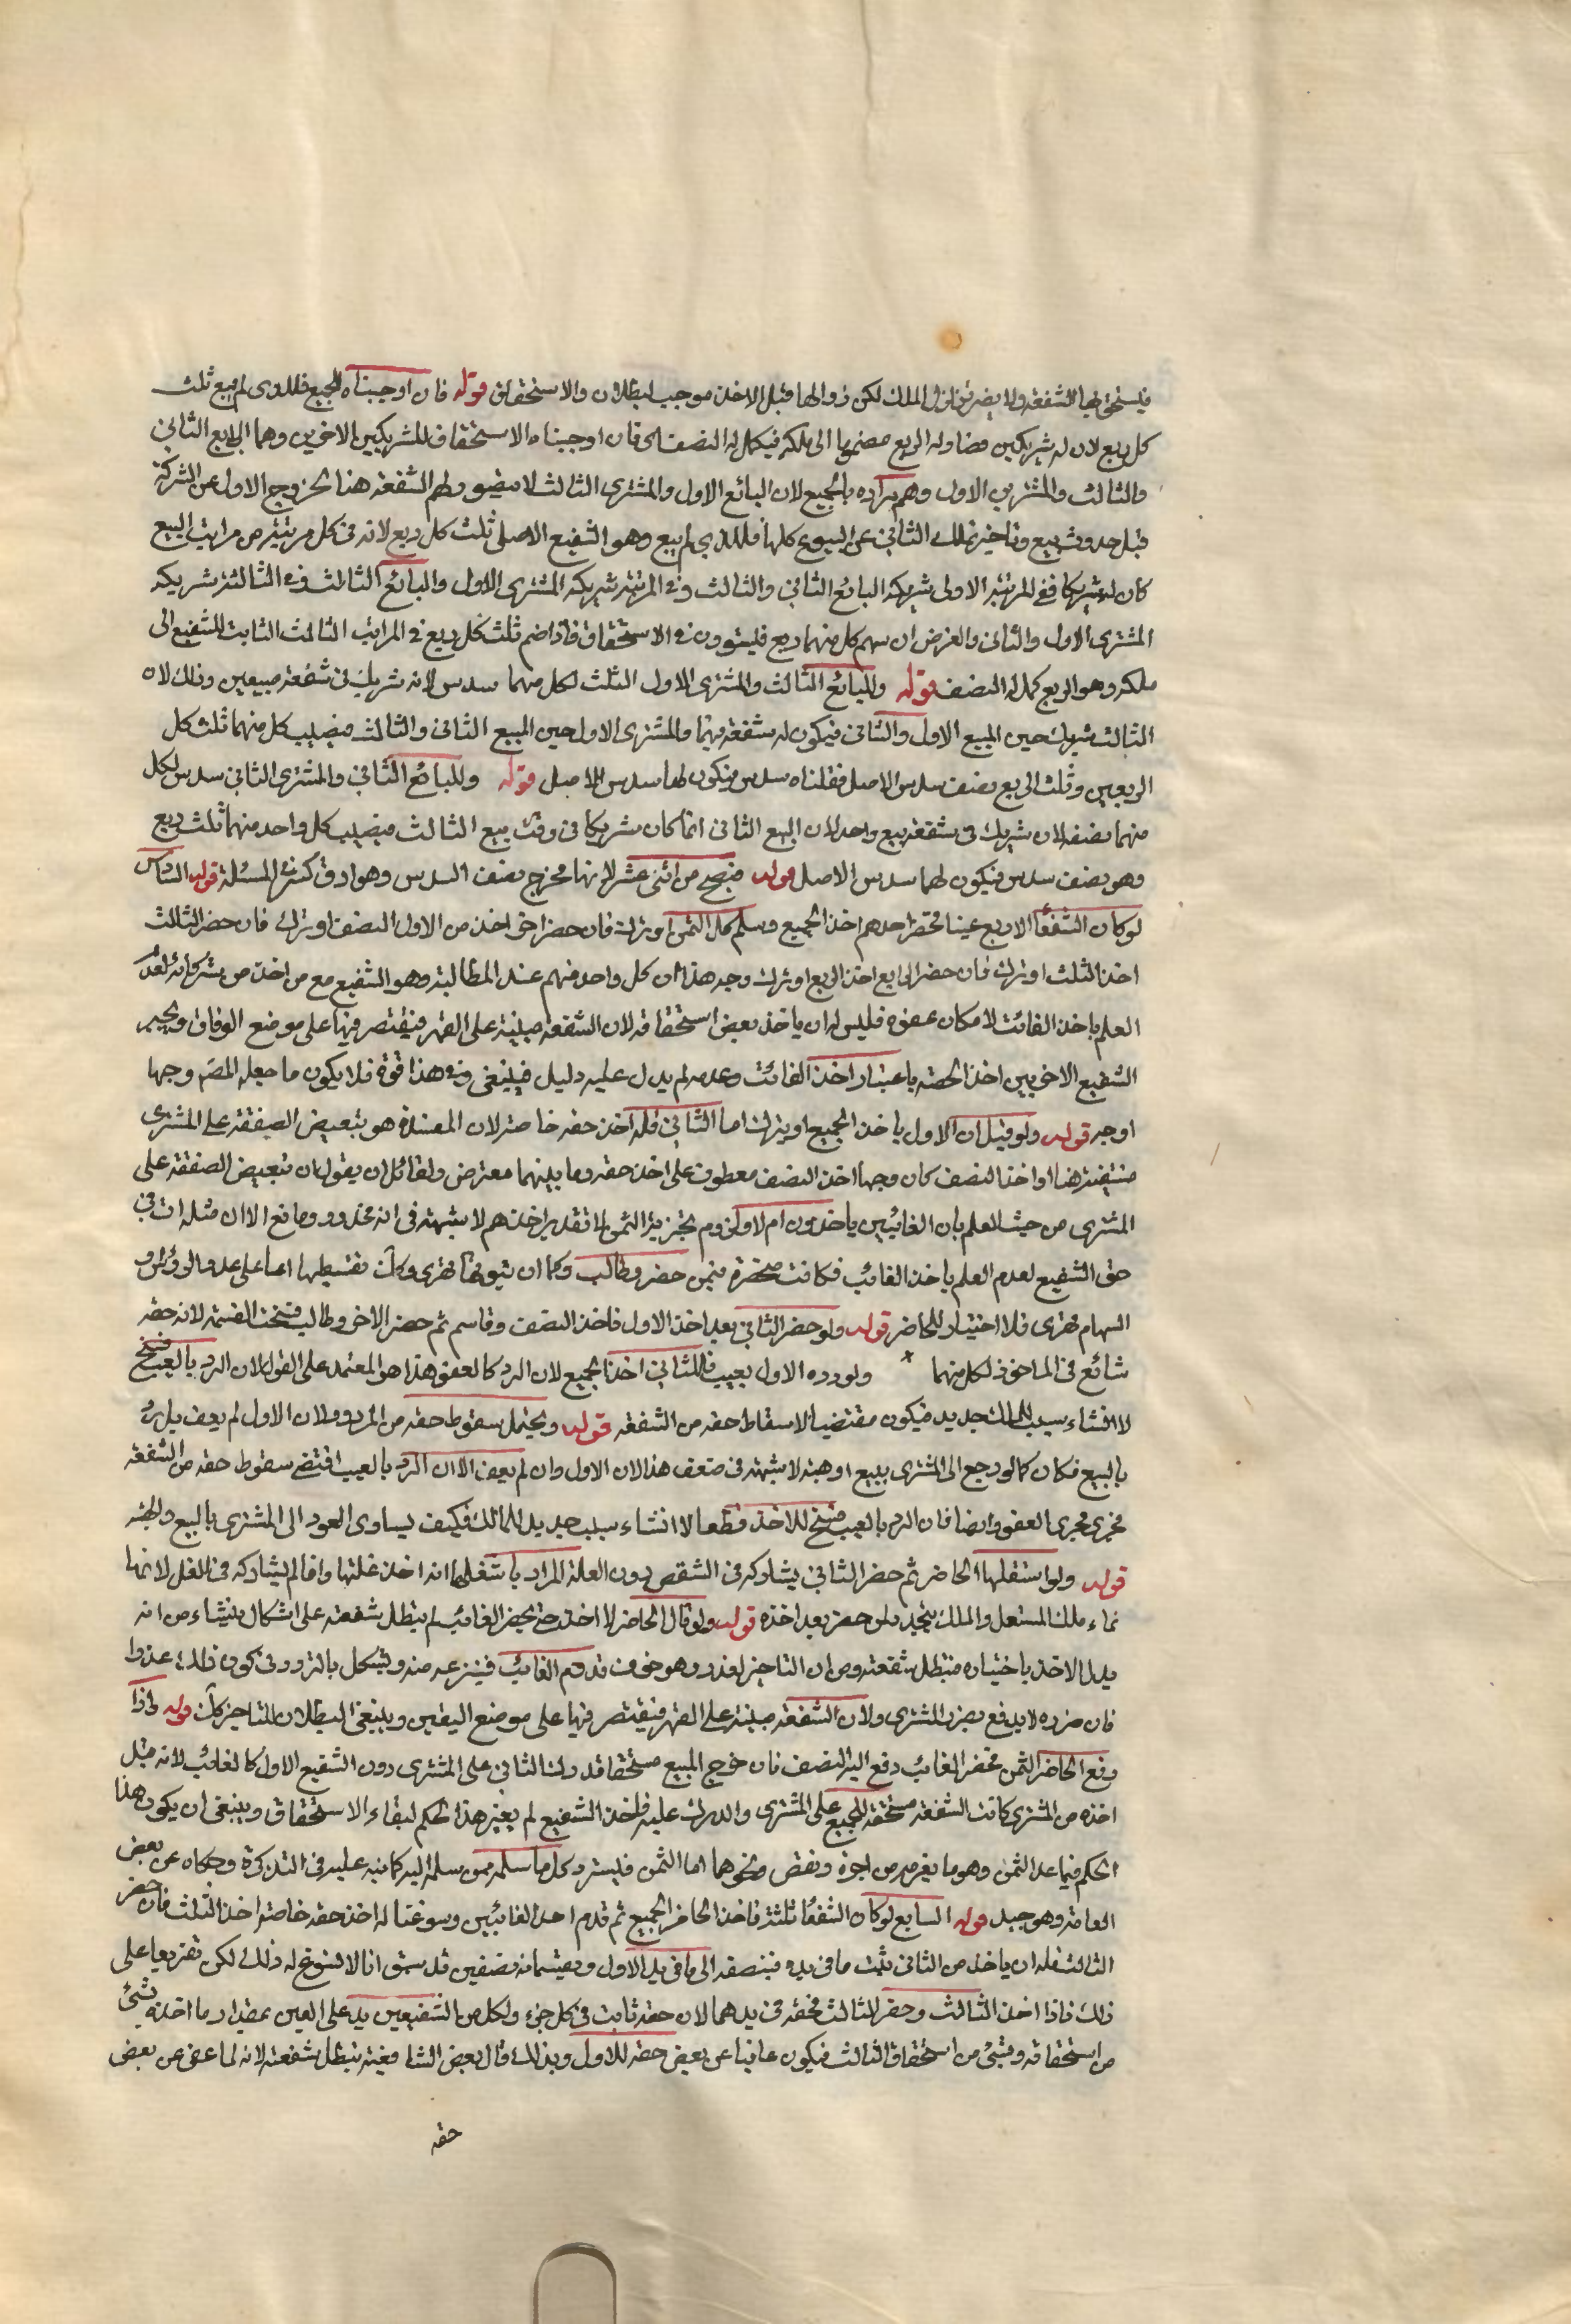 فيستحق بها الشفعة ولا يضر تزلزل الملك لكن زوالها قبل الاخذ موجب لبطلان والاستحقاق قوله فان اوجبناه للجميع فللذي لم يبع ثلث
كل ربع لان له شريكين فصار له الربع مضموما الى ملكه فيكمل له النصف اي فان اوجبناه الاستحقاق للشريكين الاخرين وهما البايع الثاني
والثالث والمشتري الاول وهم مراده بالجميع لان البائع الاول والمشتري الثالث لا يتصور لهم الشفعة هنا لخروج الاول عن الشركة
قبل حدوث بيع وتاخير تملك الثاني عن البيوع كلها فللذي لم يبع وهو الشفيع الاصلي ثلث كل ربع لانه في كل مرتبة من مراتب البيع
كان له شريكا ففي المرتبة الاولى شريكه البائع الثاني والثالث وفي المرتبة شريكه المشتري الاول والبائع الثالث وفي الثالثة شريكه
المشتري الاول والثاني والغرض ان سهم كل منهما ربع فليتوون في الاستحقاق فاذا ضم ثلث كل ربع في المراتب الثالث الثابت للشفيع الى
ملكه وهو الربع كمل له النصف قوله وللبائع الثالث والمشتري الاول الثلث لكل منهما سدس لانه شريك في شفعة مبيعين وذلك لان
الثالث شريك حين المبيع الاول والثاني فيكون له شفعة فيهما والمشتري الاول حين المبيع الثاني والثالث فنصيب كل منهما ثلث كل
الربعين وثلث الربع نصف سدس الاصل فقلناه سدس فيكون لهما سدس الاصل قوله وللبائع الثاني والمشتري الثاني سدس لكل
منهما نصفه لان شريك في شفعة بيع واحد لان البيع الثاني انما كان شريكا في وقت بيع الثالث فنصيب كل واحد منهما ثلث ربع
وهو نصف سدس فيكون لهما سدس الاصل قوله فتصح من اثنى عشر لانها مخرج نصف السدس وهو ادق كسر في المسئلة قوله السادس
لو كان الشفعاء الاربع غيبا فحضر احدهم اخذ الجميع وسلم كل الثمن او ترك فان حضر اخر اخذ من الاول النصف او ترك فان حضر الثالث
اخذ الثلث او ترك فان حضر الرابع اخذ الربع او ترك وجه هذا ان كل واحد منهم عند المطالبة وهو الشفيع مع من اخذ من شركائه لعدم
العلم باخذ الغائب لامكان عفوه فليس له ان ياخذ بعض استحقاقه لان الشفعة مبنية على القهر فيقتصر فيها على موضع الوفاق وتخيير
الشفيع الاخر بين اخذ الحصة باعتبار اخذ الغائب وعدمه لم يدل عليه دليل فينبغي وفي هذا قوة فلا يكون ما جعله المص وجها
اوجه قوله ولو قيل ان الاول ياخذ الجميع او يترك اما الثاني فله اخذ حقه خاصة لان المفسدة هو تبعيض الصفقة على المشتري
منتفية هنا او اخذ النصف كان وجها اخذ النصف معطوف على اخذ حقه وما بينهما معترض ولقائل ان يقول ان تبعيض الصفقة على
المشتري من حيث العلم بان الغائبين ياخذون ام لا ولزوم تجزية الثمن لا تقدير اخذهم لا شبهة في انه محذور ومانع الا ان مثله ات في
حق الشفيع لعدم العلم باخذ الغائب فكانت منحصرة فيمن حضر وطالب وكما ان ثبوتها قهري وكك تقسيطها اما على عدد الروؤس او
السهام قهري فلا اختيار للحاضر قوله ولو حضر الثاني بعد اخذ الاول فاخذ النصف وقاسم ثم حضر الاخر وطالب فسخت القسمة لانه حقه
شائع في الماخوذ لكل منهما ولو رده الاول بعيب فللثاني اخذ الجميع لان الرد كالعفو هذا هو المعتمد على القول لان الرد بالعيب فسخ
لا انشاء سبب للملك جديد فيكون مقتضيا لاسقاط حقه من الشفعة قوله ويحتمل سقوط حقه من المردود لان الاول لم يعف بل رد
بالبيع فكان كما لو رجع الى المشتري ببيع او هبة لا شبهة في ضعف هذا لان الاول وان لم يعف الا ان الرد بالعيب اقتضى سقوط حقه من الشفعة
فجرى مجرى العفو وايضا فان الرد بالعيب فسخ للاخذ قطعا لا انشاء سبب جديد للمالك فكيف يساوي العود الى المشتري بالبيع والهبة
قوله ولو استغلها الحاضر ثم حضر الثاني يشاركه في الشقص دون العلة المراد باستغلالها انه اخذ غلتها وانما لم يشاركه في الغلة لانها
نماء ملك المستغل والملك يتجدد لمن حضر بعد اخذه قوله ولو قال الحاضر لا اخذ حتى يحضر الغائب لم يبطل شفعته على اشكال ينشاء من انه
بذل الاخذ باختياره فتبطل شفعته ومن ان التاخير لعذر وهو خوف قدوم الغائب فينزعه منه ويشكل بالتردد في كون ذلك عذرا
فان ضرره لا يدفع بضرر المشتري ولان الشفعة مبنية على القهر فيقتصر فيها على موضع اليقين وينبغي البطلان بالتاخير كك قوله واذا
دفع الحاضر الثمن فحضر الغائب دفع اليه النصف فان خرج المبيع مستحقا قد درك الثاني على المشتري دون الشفيع الاول كالغائب لانه قبل
اخذه من المشتري كانت الشفعة مستحقة للجميع على المشتري والدرك عليه فاخذ الشفيع لم يغير هذا الحكم لبقاء الاستحقاق وينبغي ان يكون هذا
الحكم فيما عدا الثمن وهو ما يغرم من اجرة ونقص ونحوهما اما الثمن فليسترد كل ما سلمه ممن سلمه اليه كما نبه عليه في التذكرة وحكاه عن بعض
العامة وهو جيد قوله السابع لو كان الشفعاء ثلثة فاخذ الحاضر الجميع ثم قدم احد الغائبين وسوغنا له اخذ حقه خاصة اخذ الثلث فان حضر
الثالث فله ان ياخذ من الثاني ثلث ما في يده فيضفه الى ما في يد الاول ويقتسمانه نصفين قد سبق انا لا نسوغ له ذلك لكن تفريعا على
ذلك فاذا اخذ الثالث وحضر الثالث فحقه في يدهما لان حقه ثابت في كل جزء ولكل من الشفيعين يد على العين بمقدار ما اخذه بشئ
من استحقاقه وبشئ من استحقاق الثالث فيكون عافيا عن بعض حقه للاول وبذلك قال بعض الشافعية تبطل شفعته لانه لما عفى عن بعض
حقه